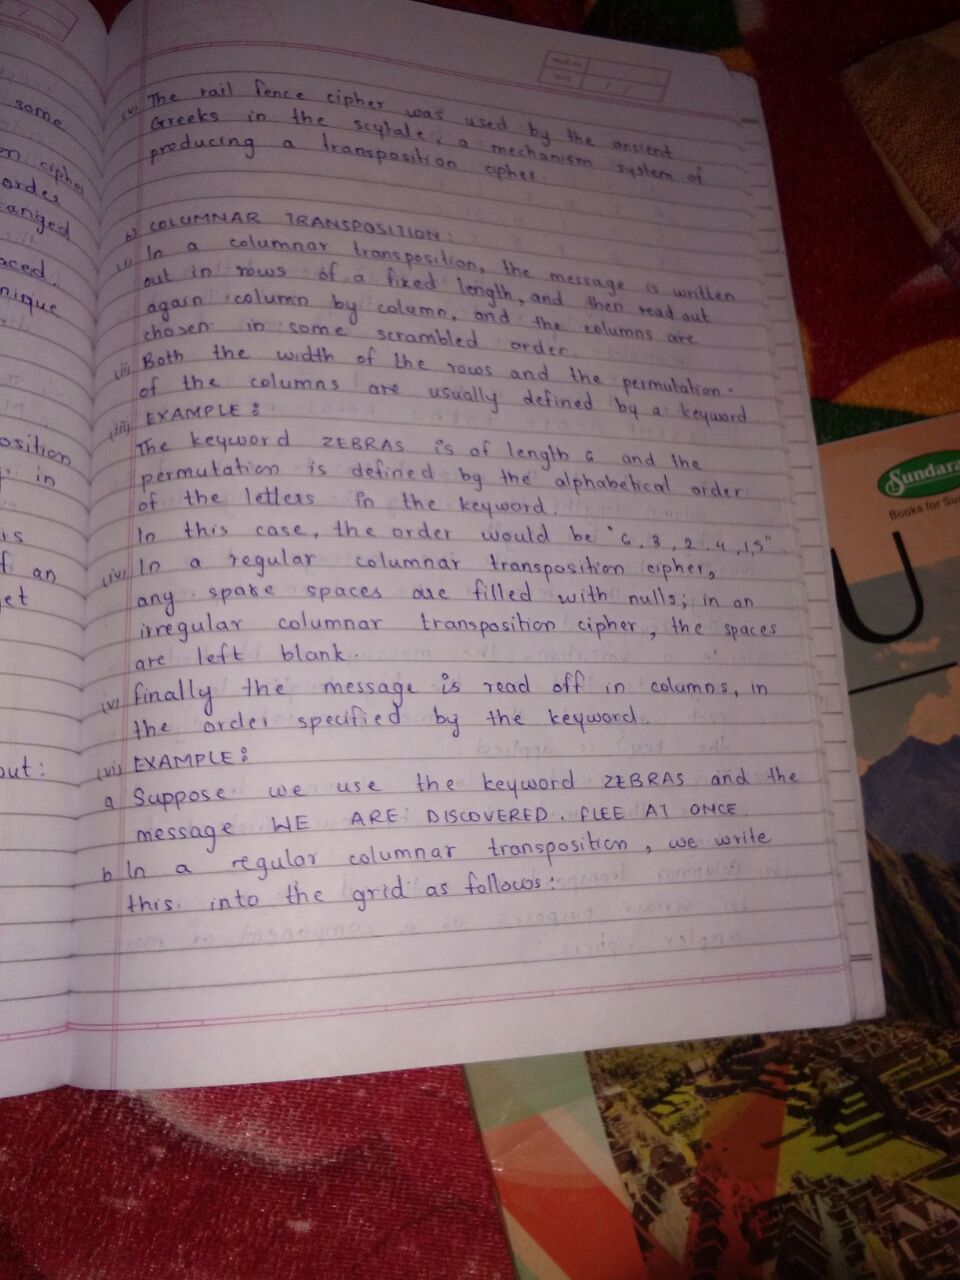 some
cipher
order
anged
aced
nique
osition
in
is
an
et
out:
(v) The rail fence cipher was used by the ancient
Greeks in the scytale, a mechanism system of
producing a transposition cipher.
b) COLUMNAR TRANSPOSITION:
(i) In a columnar transposition, the message is written
out in rows of a fixed length, and then read out
again column by column, and the columns are
chosen in some scrambled order.
(ii) Both the width of the rows and the permutation
of the columns are usually defined by a keyword
(iii) EXAMPLE:
The keyword ZEBRAS is of length 6 and the
permutation is defined by the alphabetical order
of the letters in the keyword.
In this case, the order would be "6, 3, 2, 4, 1, 5"
(iv) In a regular columnar transposition cipher,
any spare spaces are filled with nulls; in an
irregular columnar transposition cipher, the spaces
are left blank.
(v) finally the message is read off in columns, in
the order specified by the keyword.
(vi) EXAMPLE:
a Suppose we use the keyword ZEBRAS and the
message WE ARE DISCOVERED. FLEE AT ONCE
b In a regular columnar transposition, we write
this into the grid as follows:
Sundara
Books for Su
U